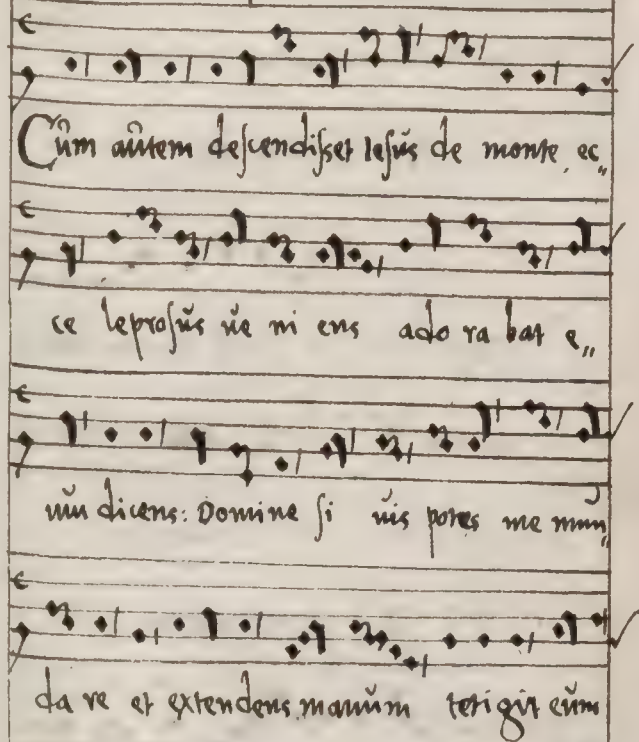 Cum autem descendisset Iesus de monte, ec„
ce leprosus ue ni ens ado ra bat e„
um dicens: Domine si uis potes me mun„
da re et extendens manum tetigit eum